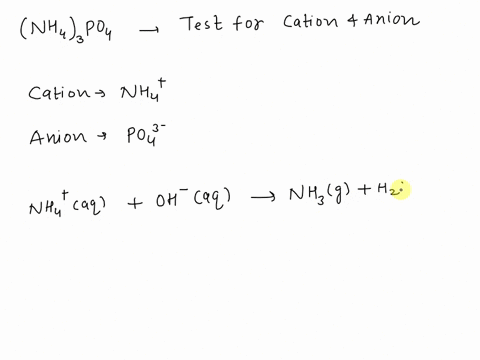 (NH₄)₃PO₄ → Test for Cation & Anion
Cation → NH₄⁺
Anion → PO₄³⁻
NH₄⁺(aq) + OH⁻(aq) → NH₃(g) + H₂